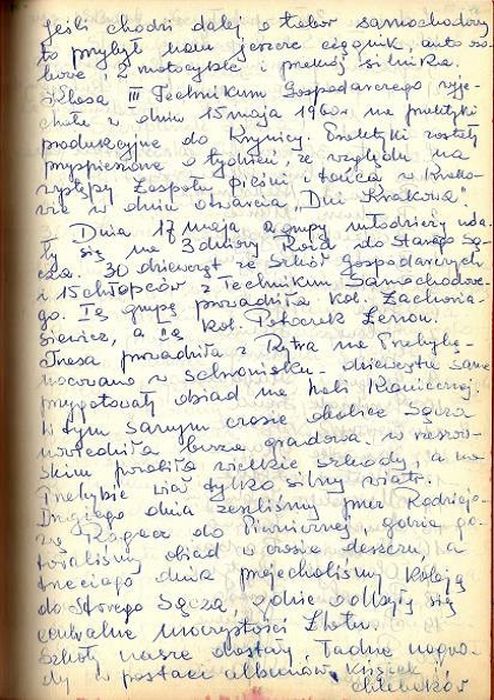 Jeśli chodzi dalej o tabor samochodowy
to przybył nam jeszcze ciągnik, auto oso-
bowe, 2 motocykle i przekrój silnika.
Klasa III Technikum Gospodarczego wyje-
chała w dniu 15 maja 1960 r na praktyki
produkcyjne do Krynicy. Praktyki zostały
przyspieszone o tydzień, ze względu na
występy Zespołu pieśni i tańca w Krako-
wie w dniu otwarcia "Dni Krakowa".
Dnia 17 maja 2 grupy młodzieży uda-
ły się na 3 dniowy Rajd do Starego Są-
cza. 30 dziewcząt ze Szkół Gospodarczych
i 15 chłopców z Technikum Samochodowe-
go. Tę grupę prowadziła kol. Zacharia-
siewicz, a kol. Zenon.
Trasa prowadziła z Rytra na Prehybę.
nocowano w schronisku - dziewczęta same
przygotowały obiad na hali Koniecznej.
W tym samym czasie okolice Sącza
nawiedziła burza gradowa. w rzeszow-
skim porobiła wielkie szkody, a na
Prehybie wiał tylko silny wiatr.
Drugiego dnia zeszliśmy przez Radziejo-
wą Rogacz do Piwnicznej, gdzie go-
towaliśmy obiad w czasie deszczu, a
trzeciego dnia przejechaliśmy koleją
do Starego Sącza, gdzie odbyły się
centralne uroczystości Zlotu.
Szkoły nasze dostały ładne nagro-
dy w postaci albumów, książek i